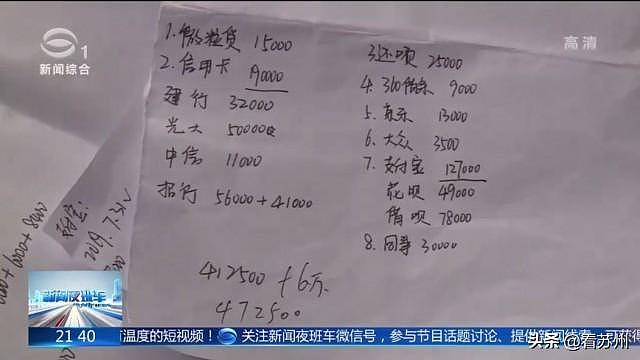 1
新闻综合
高清
1. 微粒贷 15000
2. 信用卡 190000
建行 32000
光大 50000
中信 11000
招行 56000+41000
3. 还呗 25000
4. 360借条 9000
5. 京东 13000
6. 大众 3500
7. 支付宝 127000
花呗 49000
借呗 78000
8. 同事 30000
412500+6万
472500
新闻夜班车
21 40
有温度的短视频！ 关注新闻夜班车微信号，参与节目话题讨论、提供新闻线索，可获得
头条@看苏州